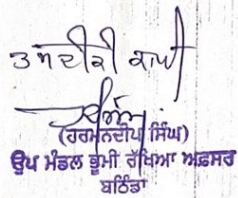 ਤਸਦੀਕੀ ਕਾਪੀ
(ਹਰਮਨਦੀਪ ਸਿੰਘ)
ਉਪ ਮੰਡਲ ਭੂਮੀ ਰੱਖਿਆ ਅਫ਼ਸਰ
ਬਠਿੰਡਾ